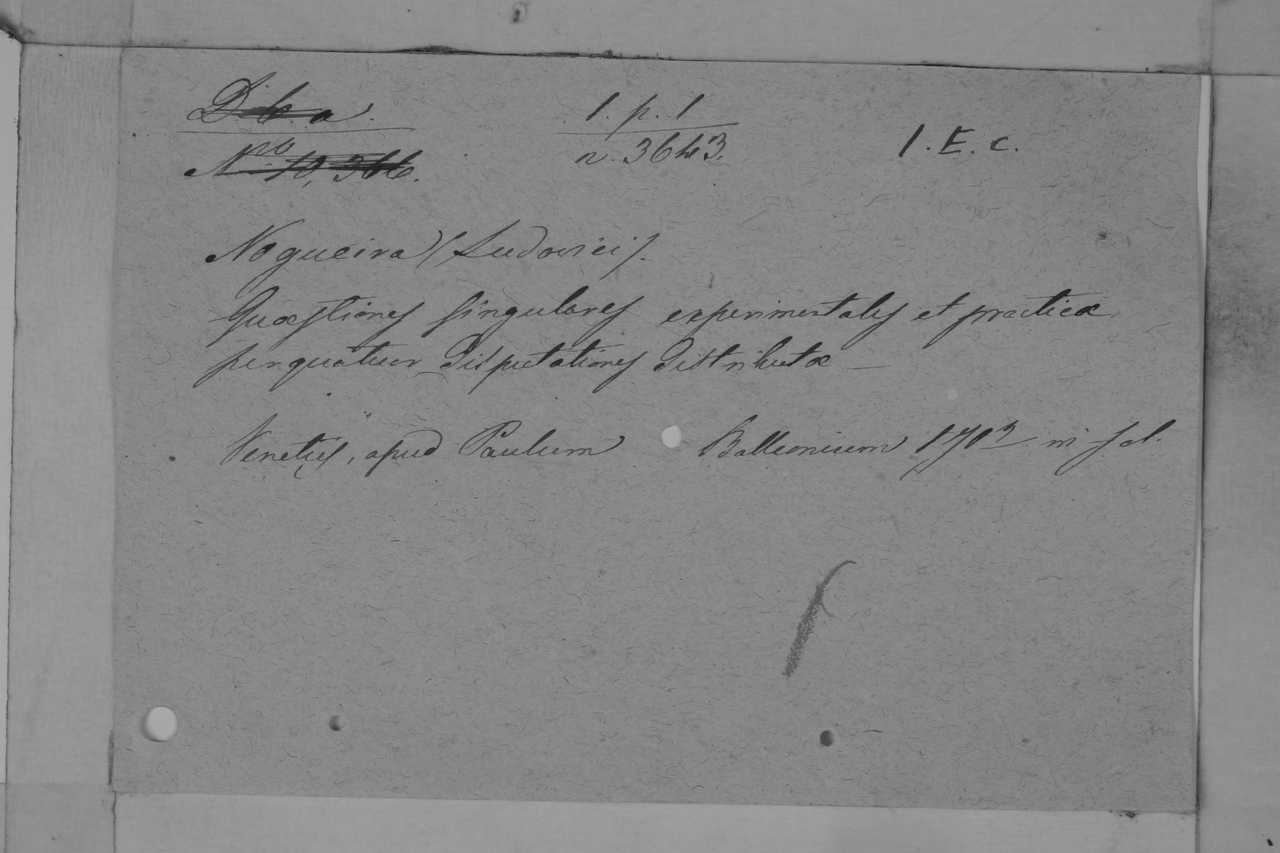 D.b.a.
1. p. 1
1. E. c.
Nro 10,366.
n. 3643.
Nogueira (Ludovici).
Quæstiones singulares experimentales et practicæ,
per quatuor disputationes distributæ —
Venetiis, apud Paulum Balleonium 1702 in fol.